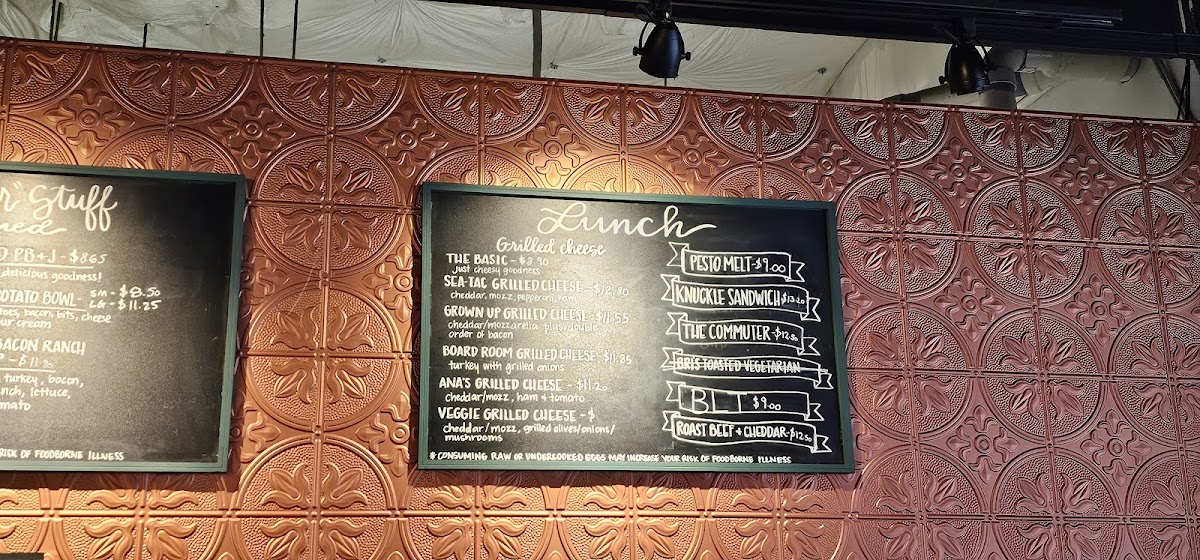 r Stuff
D PB+J - $8.65
delicious goodness!
POTATO BOWL - SM - $8.50
LG - $11.25
toes, bacon, bits, cheese
our cream
BACON RANCH
turkey, bacon,
nch, lettuce,
mato
RISK OF FOODBORNE ILLNESS
Lunch
Grilled cheese
THE BASIC - $8.90
just cheesy goodness
SEA-TAC GRILLED CHEESE - $12.80
cheddar, mozz, pepperoni, ham
GROWN UP GRILLED CHEESE - $11.55
cheddar/mozzarella, plus double
order of bacon
BOARD ROOM GRILLED CHEESE $11.85
turkey with grilled onions
ANA'S GRILLED CHEESE - $11.20
cheddar/mozz, ham & tomato
VEGGIE GRILLED CHEESE - $
cheddar/mozz, grilled olives/onions/
mushrooms
PESTO MELT - $9.00
KNUCKLE SANDWICH $13.20
THE COMMUTER - $12.50
BRI'S TOASTED VEGETARIAN
BLT $9.00
ROAST BEEF + CHEDDAR - $12.50
* CONSUMING RAW OR UNDERCOOKED EGGS MAY INCREASE YOUR RISK OF FOODBORNE ILLNESS